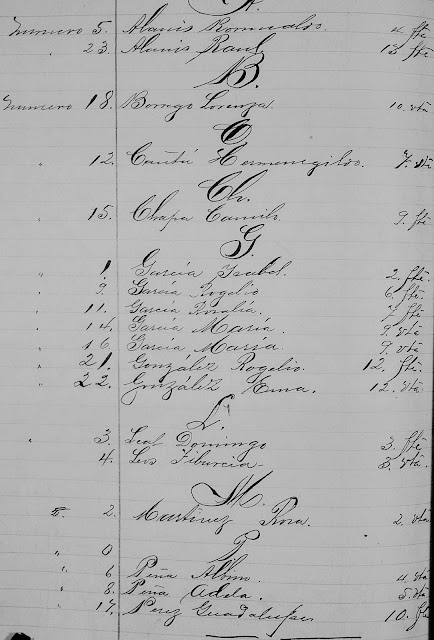 A.
Numero 5. Alanis Romualdo. 4. fte
23. Alanis Raul 13. fte
B.
Numero 18. Borrego Lorenza 10. vta
C
" 12. Cantú Hermenegildo. 7. vta
Ch.
" 15. Chapa Camilo 9. fte
G.
" 1. García Isabel. 2. fte.
" 9. García Rogelio 6. fte.
" 11. García Rosalía. 7. fte
" 14. García María. 9. vta
" 16. García María. 9. vta
" 21. González Rogelio 12. fte.
" 22. González Ema. 12. vta
L.
" 3. Leal Domingo 3. fte.
4. Tiburcia 3. vta.
M.
2. Martinez Rosa. 2. vta
P
" 0
" 6 Peña 4. vta
" 8. Peña Adela. 5. vta
" 17. Perez Guadalupe 10. fte